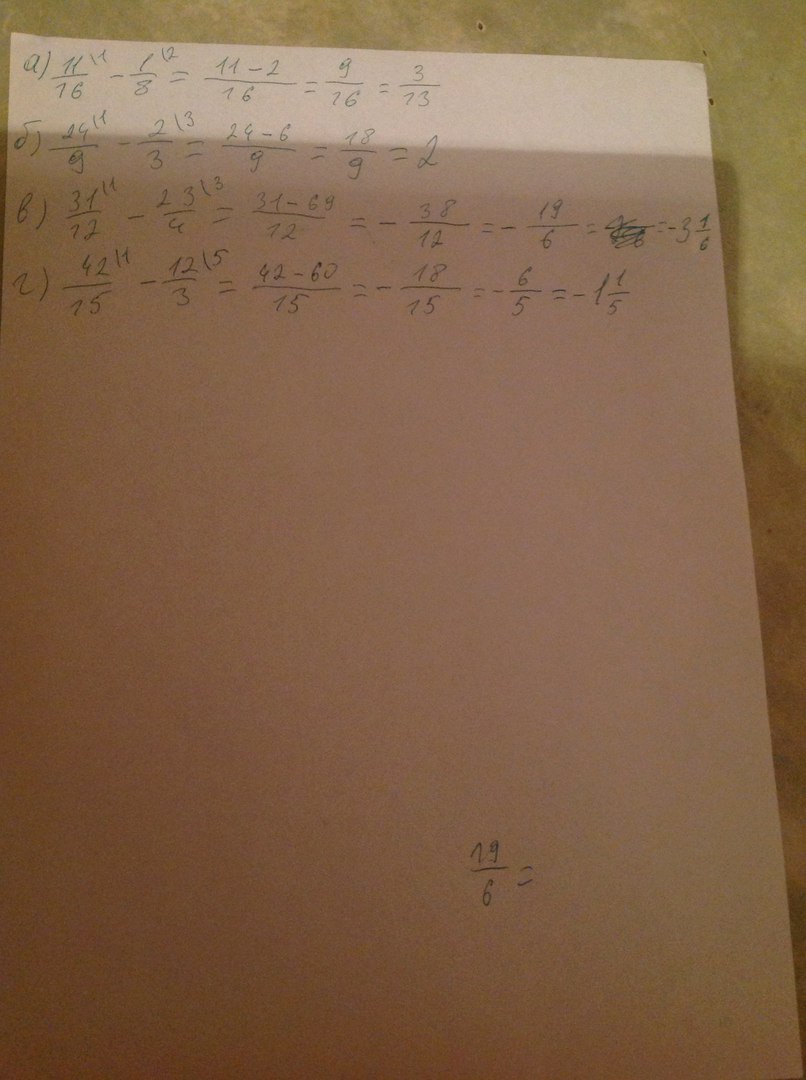 а) 11\1/16 - 1\2/8 = 11-2/16 = 9/16 = 3/13
б) 24\1/9 - 2\3/3 = 24-6/9 = 18/9 = 2
в) 31\1/12 - 23\3/4 = 31-69/12 = - 38/12 = - 19/6 = = -3 1/6
г) 42\1/15 - 12\5/3 = 42-60/15 = - 18/15 = - 6/5 = -1 1/5
19/6 =